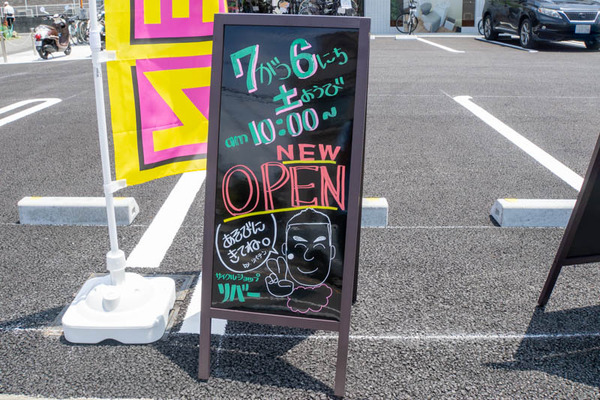 7がつ6にち
土ようび
am10:00~
NEW
OPEN
あそびに
きてね。
サイクルショップ
リバー